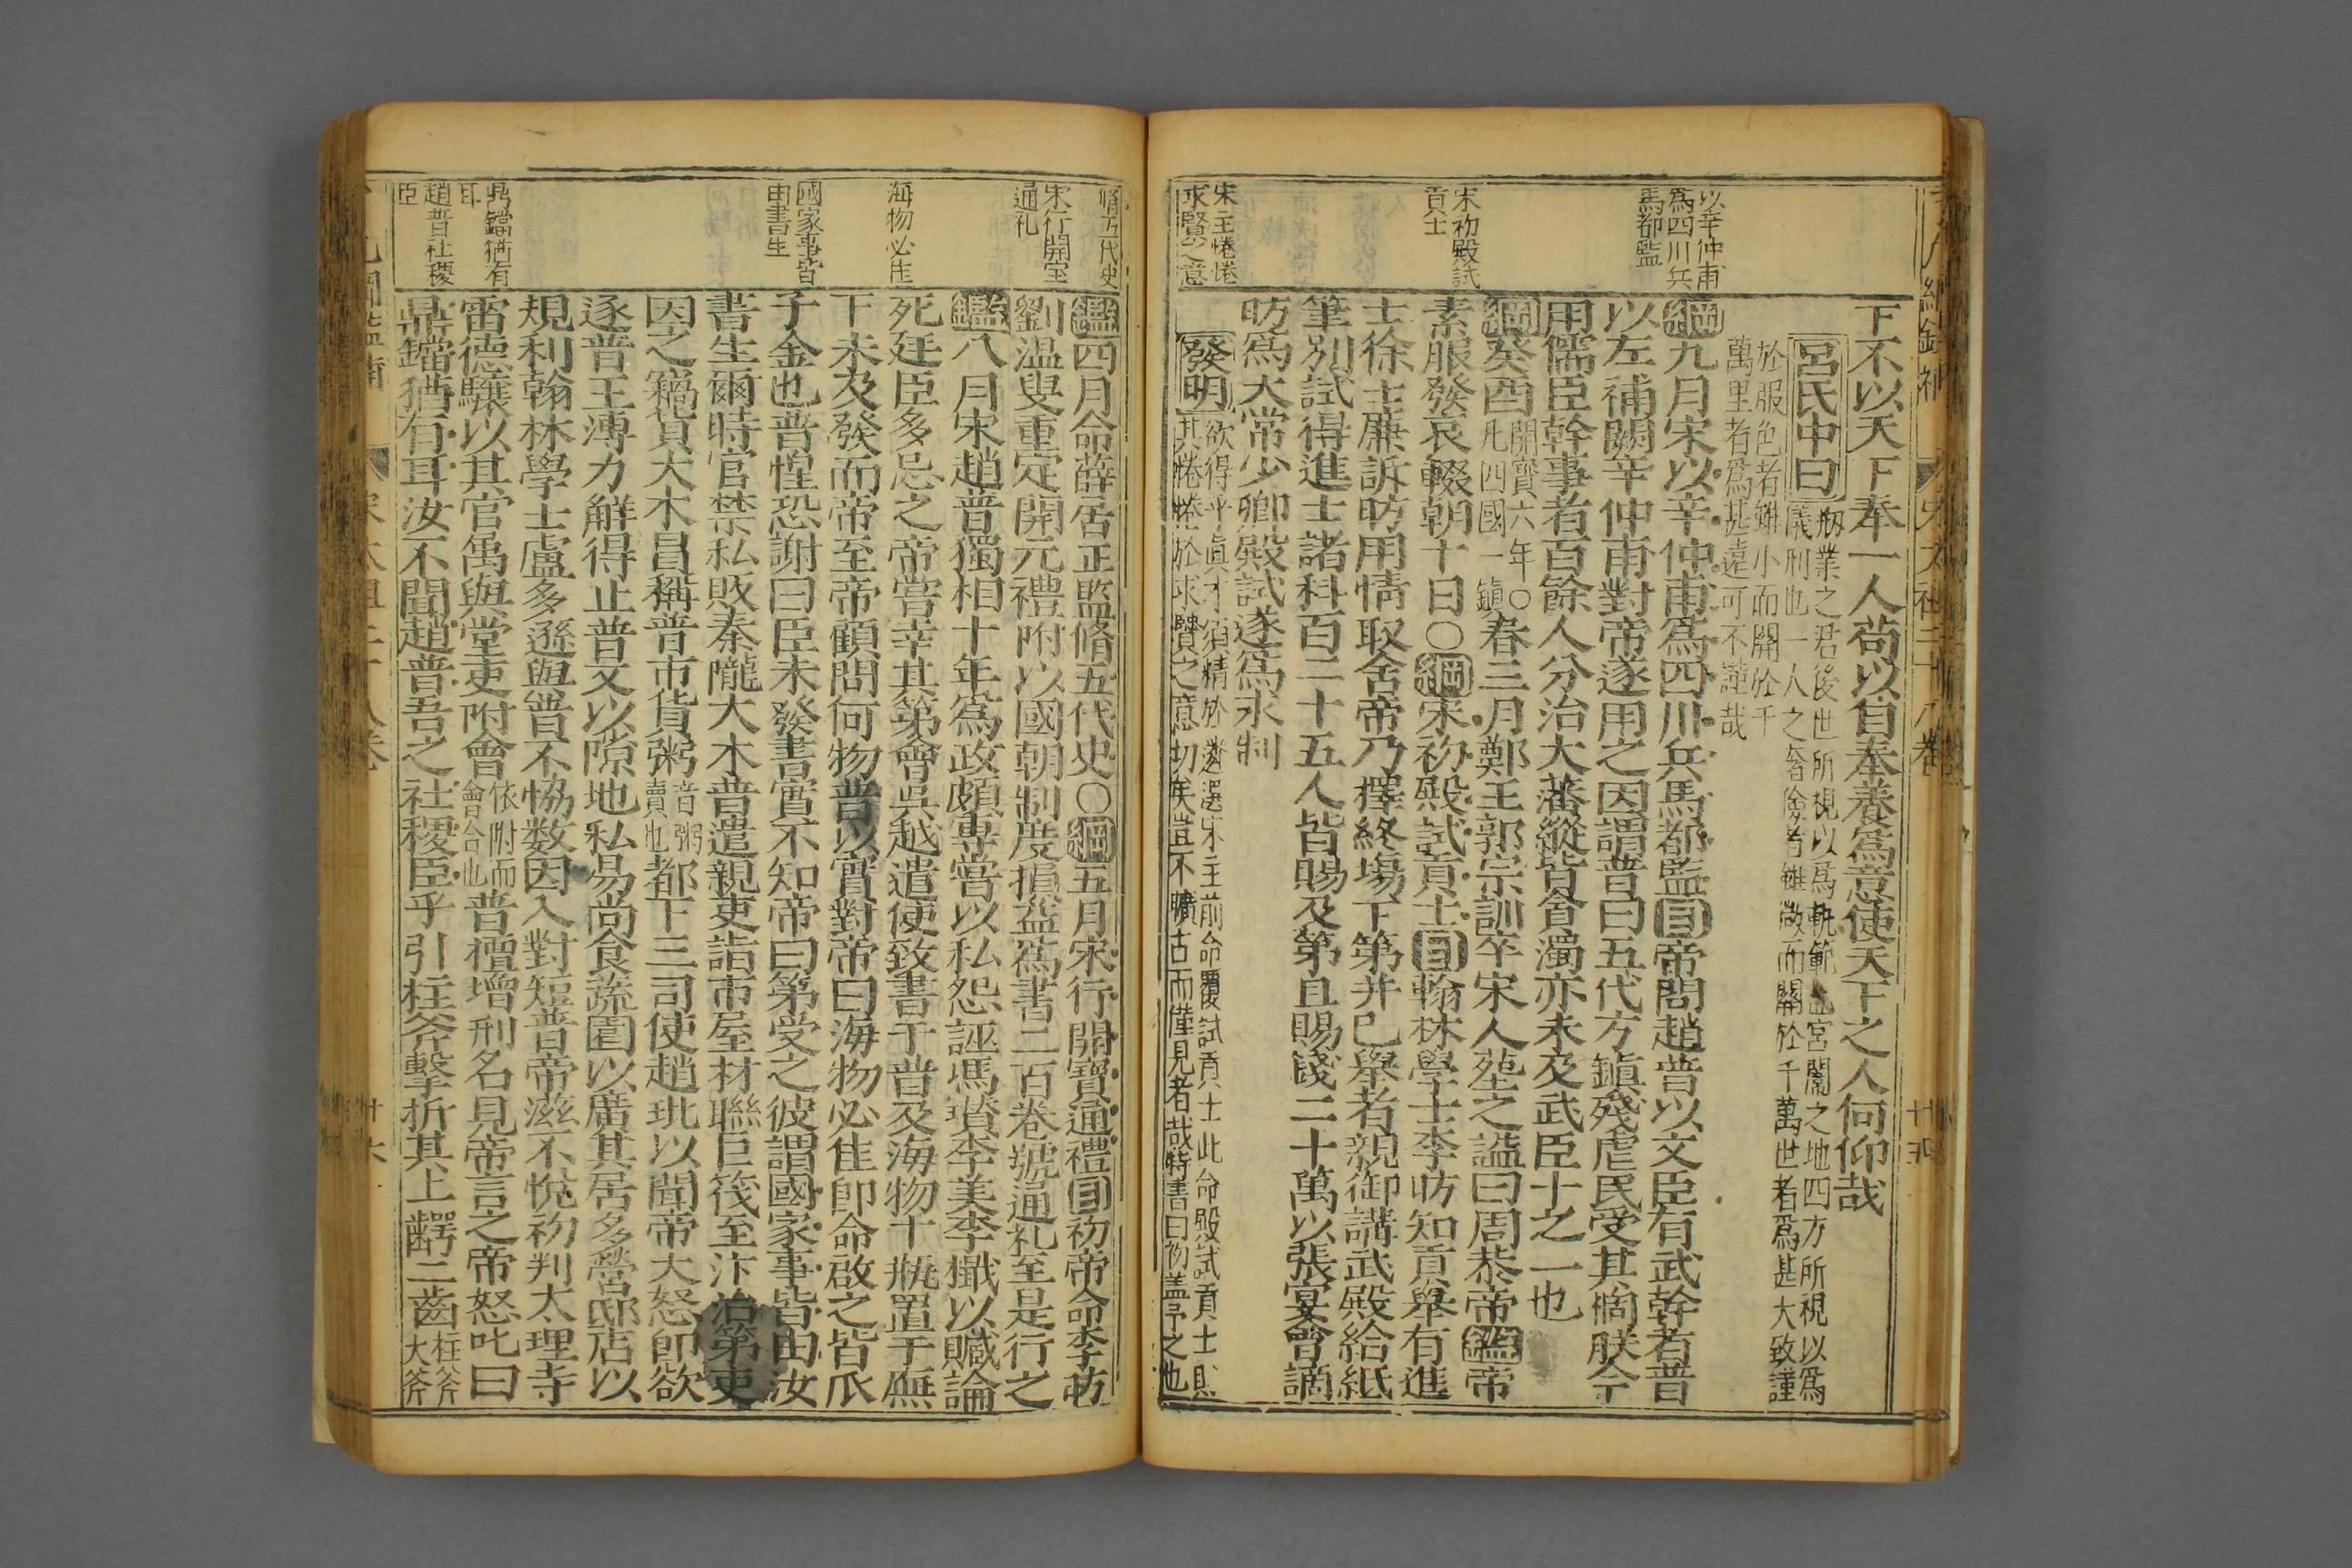 以辛仲甫
爲四川兵
馬都監
宋初殿試
貢士
宋主惓惓
求賢之意
下不以天下奉一人苟以自奉養爲意使天下之人何仰哉
呂氏中曰
刱業之君後世所視以爲軌範也宮闈之地四方所視以爲
儀刑也一人之奢儉者雖微而關於千萬世者爲甚大致謹
於服色者雖小而關於千
萬里者爲甚遠可不謹哉
綱九月宋以辛仲甫爲四川兵馬都監目帝問趙普以文臣有武幹者普
以左補闕辛仲甫對帝遂用之因謂普曰五代方鎮殘虐民受其禍朕今
用儒臣幹事者百餘人分治大藩縱皆貪濁亦未及武臣十之一也
綱癸酉
開寶六年○
凡四國一鎮
春三月鄭王郭宗訓卒宋人塟之謚曰周恭帝鑑帝
素服發哀輟朝十日○綱宋初殿試貢士目翰林學士李昉知貢舉有進
士徐士廉訴昉用情取舍帝乃擇終塲下第并已舉者親御講武殿給紙
筆別試得進士諸科百二十五人皆賜及第且賜錢二十萬以張宴會謫
昉爲大常少卿殿試遂爲永制
發明
欲得乎眞才須精於遴選宋主前命覆試貢士此命殿試貢士則
其惓惓於求賢之意切矣豈不曠古而僅見者哉特書曰初盖予之也
脩五代史
宋行開宝
通礼
海物必佳
國家事皆
由書生
鼎鐺猶有
耳
趙普社稷
臣
鑑四月命薛居正監脩五代史○綱五月宋行開寶通禮目初帝命李昉
劉温叟重定開元禮附以國朝制度損益爲書二百卷號通礼至是行之
鑑八月宋趙普獨相十年爲政頗專嘗以私怨誣馮瓚李美李檝以贓論
死廷臣多忌之帝嘗幸其第會吳越遣使致書于普及海物十瓶置于廡
下未及發而帝至帝顧問何物普以實對帝曰海物必佳卽命啟之皆瓜
子金也普惶恐謝曰臣未發書實不知帝曰第受之彼謂國家事皆由汝
書生爾時官禁私販秦隴大木普遣親吏詣市屋材聯巨筏至汴治第吏
因之竊貨大木冒稱普市貨粥
音粥
賣也
都下三司使趙玭以聞帝大怒卽欲
逐普王溥力解得止普又以隙地私易尚食蔬圃以廣其居多營邸店以
規利翰林學士盧多遜與普不恊数因入對短普帝滋不悅初判大理寺
雷德驤以其官属與堂吏附會
依附而
會合也
普擅增刑名見帝言之帝怒叱曰
鼎鐺猶有耳汝不聞趙普吾之社稷臣乎引柱斧擊折其上齶二齒
柱斧
大斧